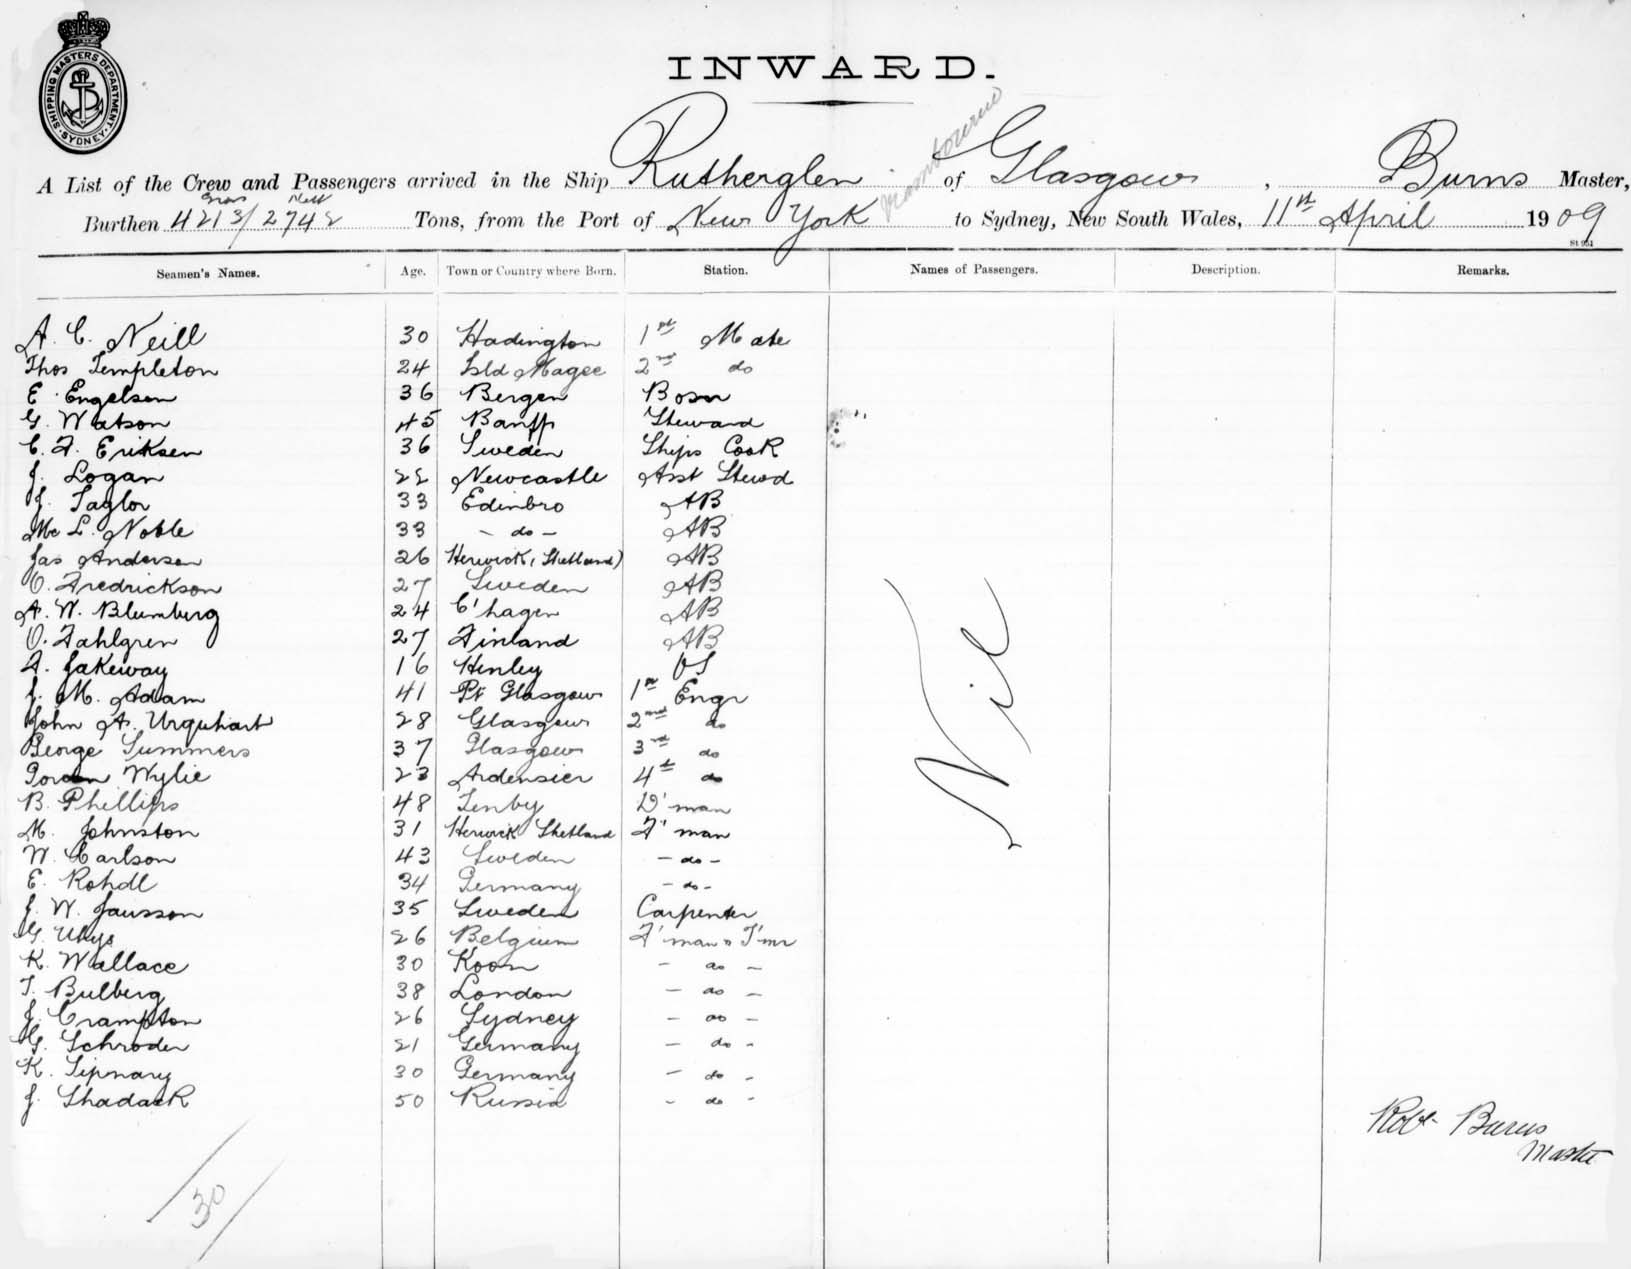 SHIPPING MASTERS DEPARTMENT. SYDNEY.
INWARD.
A List of the Crew and Passengers arrived in the Ship Rutherglen of Glasgow, Burns Master,
Gross Nett
Burthen 4213/2742 Tons, from the Port of New York to Sydney, New South Wales, 11th April 1909
Seamen's Names. Age. Town or Country where Born. Station. Names of Passengers. Description. Remarks.
A. C. Neill 30 Hadington 1st Mate
Thos Templeton 24 Isld Magee 2nd do
E. Engelsen 36 Bergen Bosn
G. Watson 45 Banff Steward
C. F. Eriksen 36 Sweden Ships Cook
J. Logan 22 Newcastle Asst Stewd
J. Taylor 33 Edinbro AB
Mc L. Noble 33 - do - AB
Jas Anderson 26 Herwick, Shetland) AB
O. Fredrickson 27 Sweden AB
A. W. Blumburg 24 C'hagen AB
O. Fahlgren 27 Finland AB
F. Jakeway 16 Henley OS
J. M. Adam 41 Pt Glasgow 1st Engr
John A. Urquhart 28 Glasgow 2nd do
George Summers 37 Glasgow 3rd do
Wylie 23 Ardensier 4th do
B. Phillips 48 Tenby D'man
M. Johnston 31 Herwick Shetland F'man
W. Carlson 43 Sweden - do -
E. Rohdl 34 Germany - do -
J. W. Jansson 35 Sweden Carpenter
G. 26 Belgium F'man & T'mr
K. Wallace 30 Koon - do -
T. Bulberg 38 London - do -
J. Crampton 26 Sydney - do -
G. Schroder 21 Germany - do -
K. Tipnary 30 Germany - do -
J. Shadack 50 Russia - do -
Nil
Robt Burns
Master
30